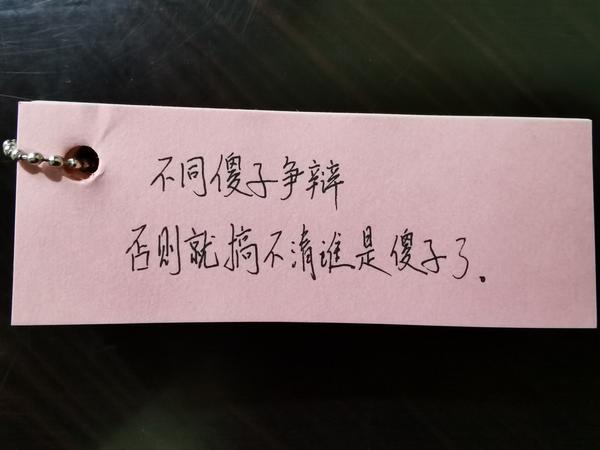 不同傻子争辩
否则就搞不清谁是傻子了。